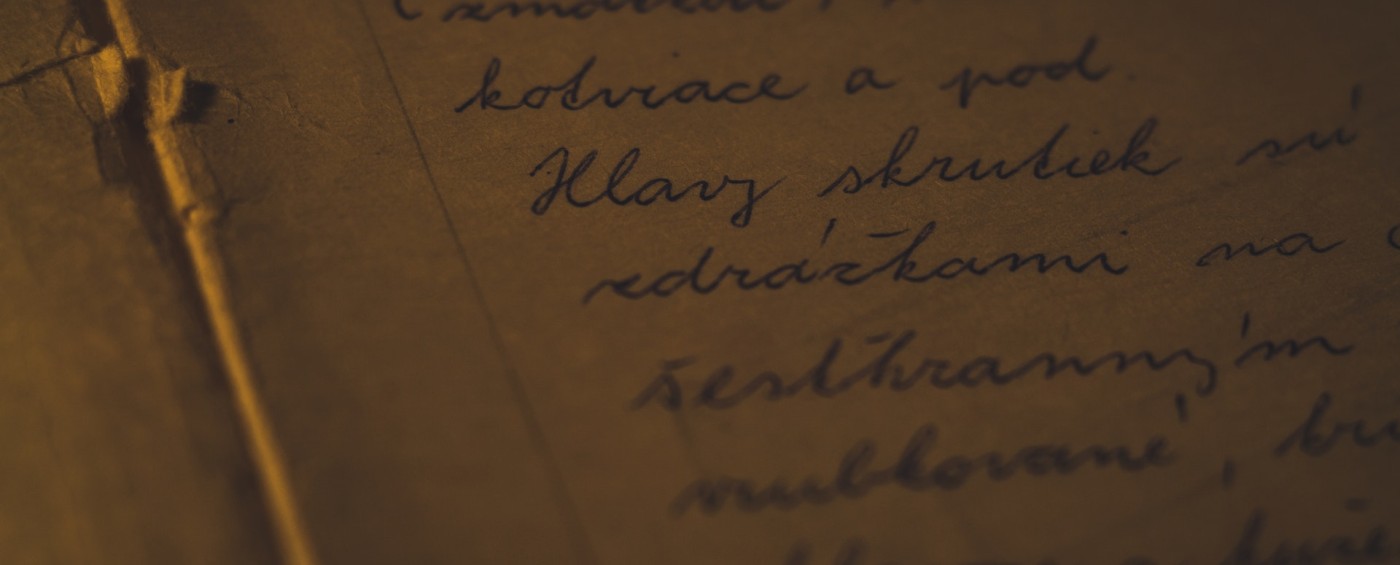 kotviace a pod.
Hlavy skrutiek sú
zdrážkami na
šesťhranným
vrubkované,